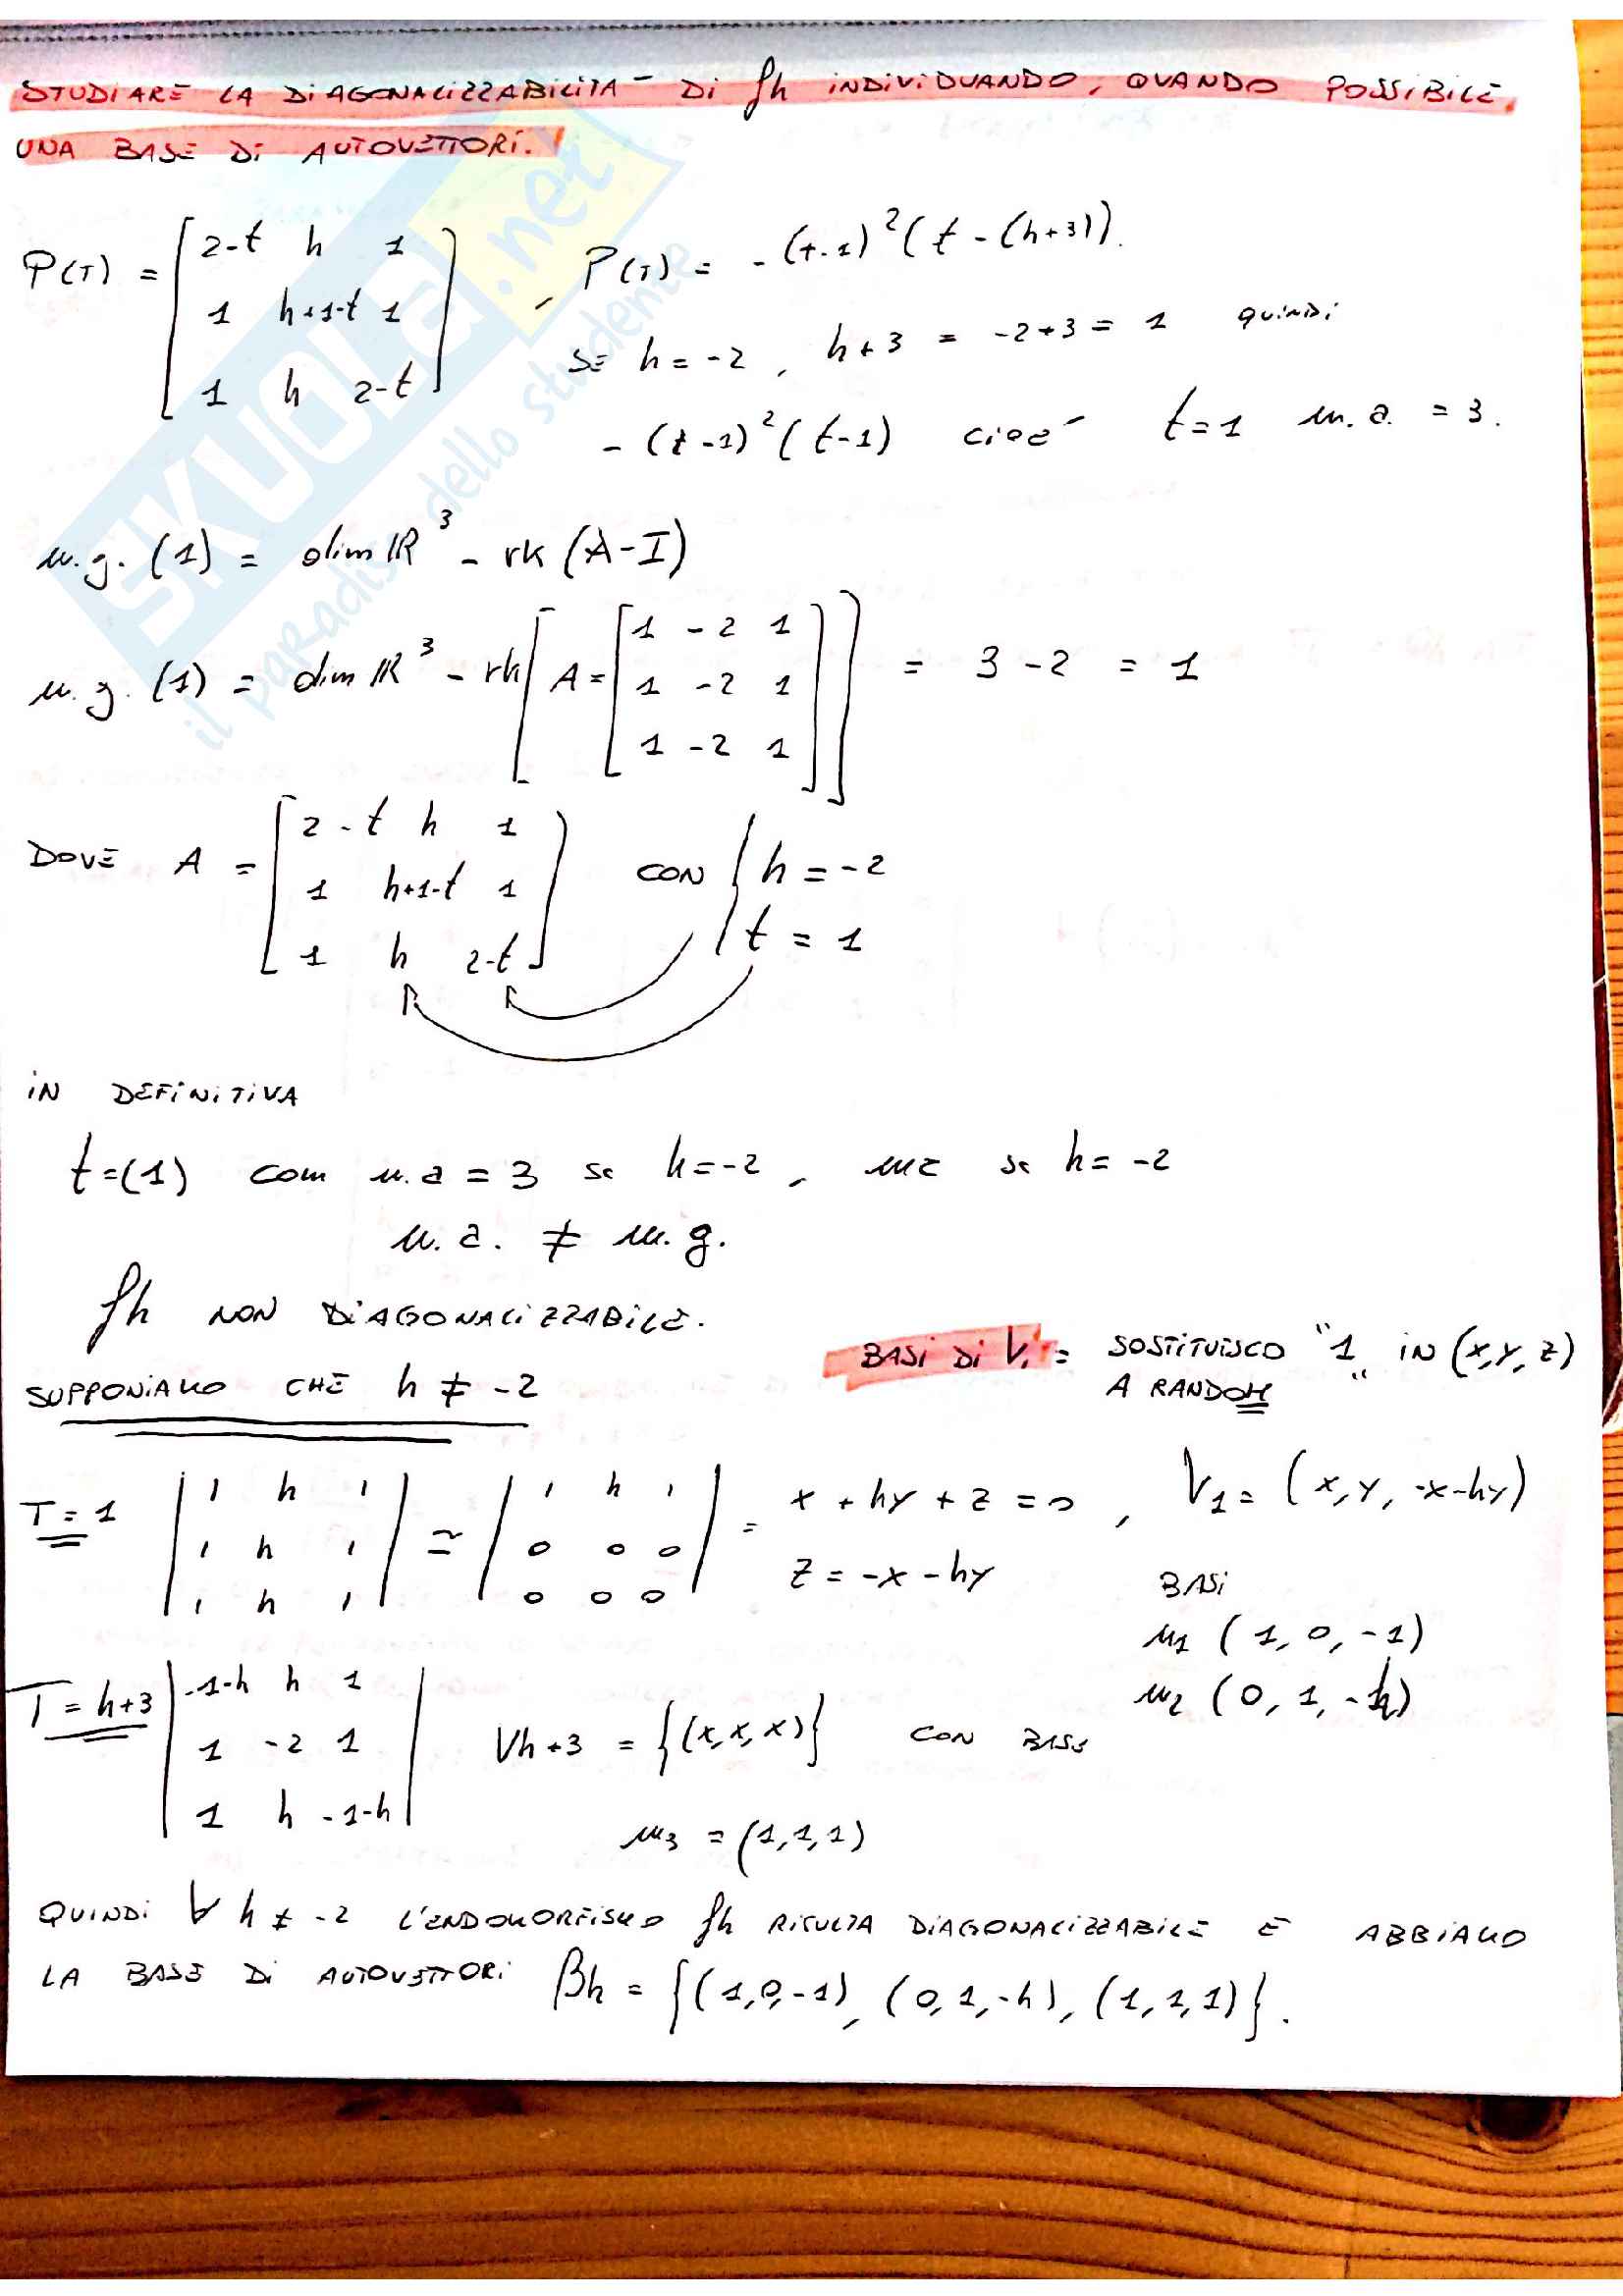 STUDIARE LA DIAGONALIZZABILITA' DI fh INDIVIDUANDO, QUANDO POSSIBILE,
UNA BASE DI AUTOVETTORI.
P(T) = [2-t h 1
1 h+1-t 1
1 h 2-t] , P(T) = -(t-1)²(t-(h+3)).
SE h = -2 , h+3 = -2+3 = 1 quindi
-(t-1)²(t-1) cioè t=1 m.a. = 3.
m.g. (1) = dim IR³ - rk (A-I)
m.g. (1) = dim IR³ - rk [A = [1 -2 1
1 -2 1
1 -2 1]] = 3 - 2 = 1
DOVE A = [2-t h 1
1 h+1-t 1
1 h 2-t] CON { h = -2
t = 1
IN DEFINITIVA
t=(1) com m.a = 3 se h=-2, ma se h= -2
m.a. ≠ m.g.
fh NON DIAGONALIZZABILE.
BASI DI V₁ = SOSTITUISCO "1" IN (x,y,z)
A RANDOM
SUPPONIAMO CHE h ≠ -2
T = 1 |1 h 1
1 h 1
1 h 1| ≃ |1 h 1
0 0 0
0 0 0| = x + hy + z = 0 , V₁ = (x,y,-x-hy)
z = -x - hy
BASI
u₁ (1, 0, -1)
u₂ (0, 1, -h)
T = h+3 |-1-h h 1
1 -2 1
1 h -1-h| Vh+3 = {(x,x,x)} CON BASE
u₃ = (1,1,1)
QUINDI ∀ h ≠ -2 L'ENDOMORFISMO fh RISULTA DIAGONALIZZABILE E ABBIAMO
LA BASE DI AUTOVETTORI βh = {(1,0,-1), (0,1,-h), (1,1,1)}.
SKUOLA.net
il paradiso dello studente